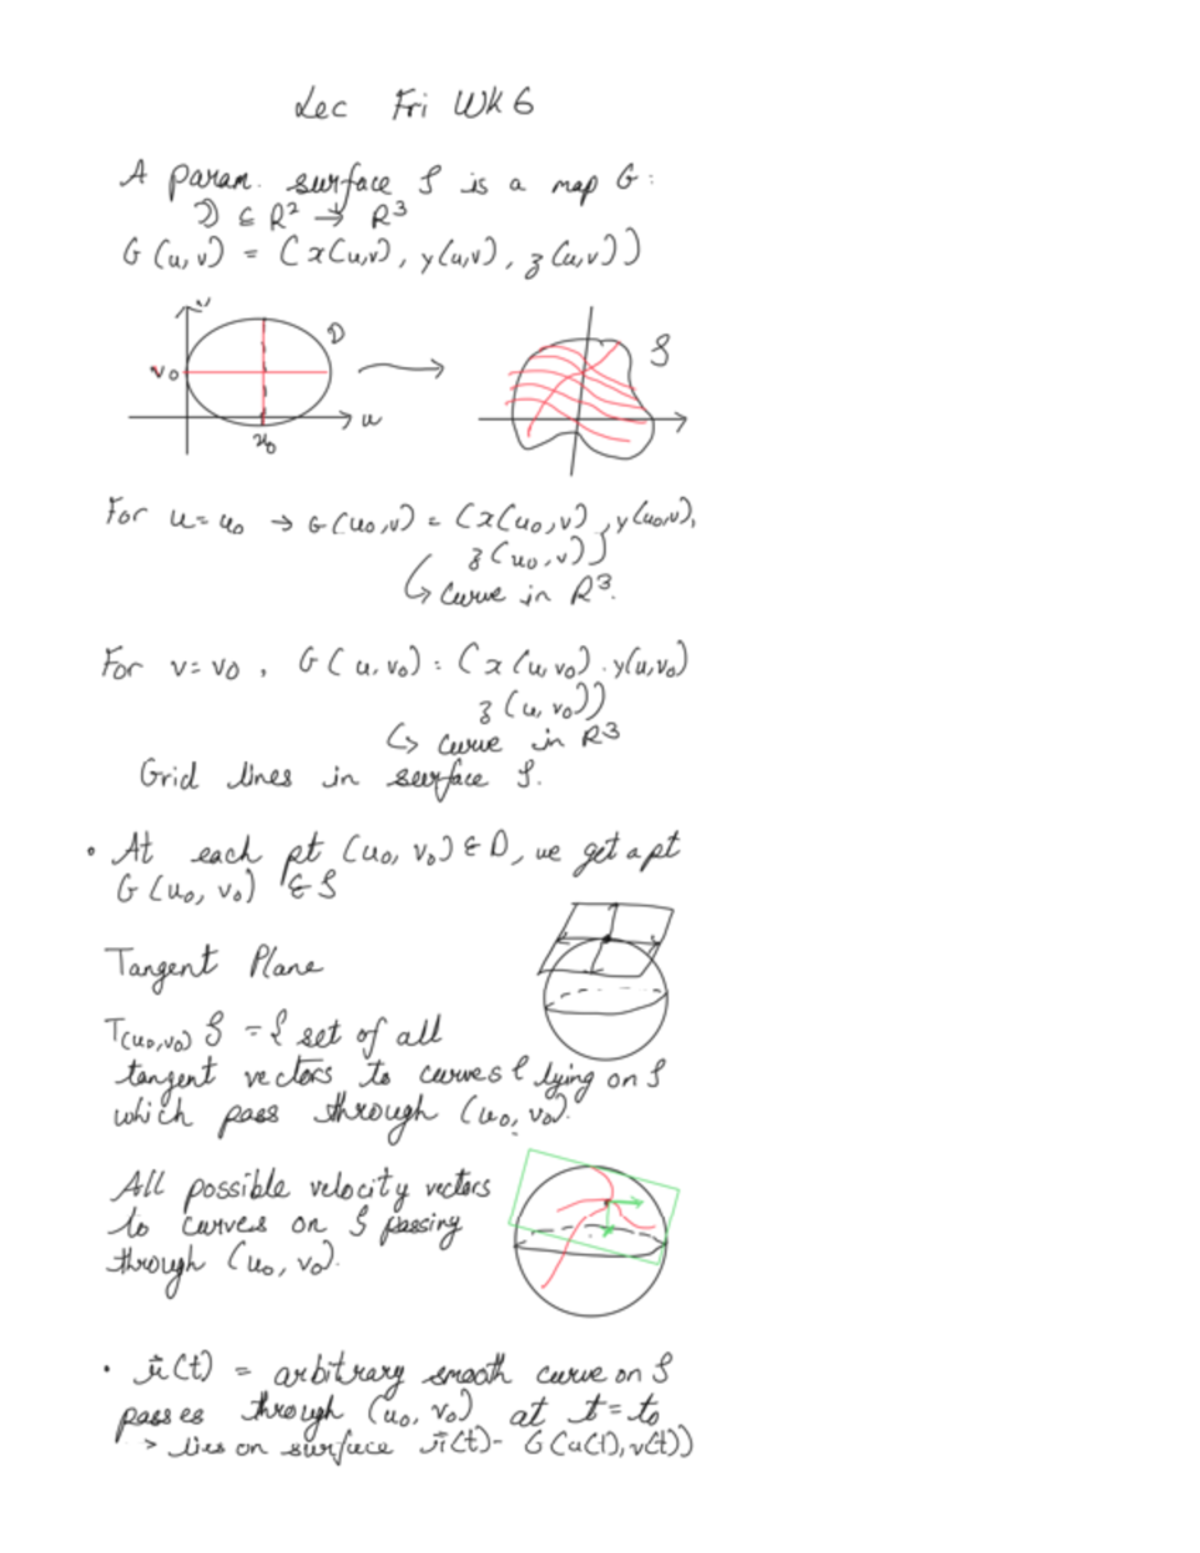 Lec Fri Wk 6
A param. surface S is a map G:
D ⊆ R² → R³
G(u,v) = (x(u,v), y(u,v), z(u,v))
v
D
S
v₀
u
u₀
For u=u₀ → G(u₀,v) = (x(u₀,v), y(u₀,v),
z(u₀,v))
↳ curve in R³.
For v=v₀, G(u,v₀) = (x(u,v₀), y(u,v₀)
z(u,v₀))
↳ curve in R³
Grid lines in surface S.
• At each pt (u₀, v₀) ∈ D, we get a pt
G(u₀, v₀) ∈ S
Tangent Plane
T(u₀,v₀) S = { set of all
tangent vectors to curves C lying on S
which pass through (u₀, v₀).
All possible velocity vectors
to curves on S passing
through (u₀, v₀).
• r⃗(t) = arbitrary smooth curve on S
passes through (u₀, v₀) at t=t₀
> lies on surface r⃗(t) - G(u(t), v(t))